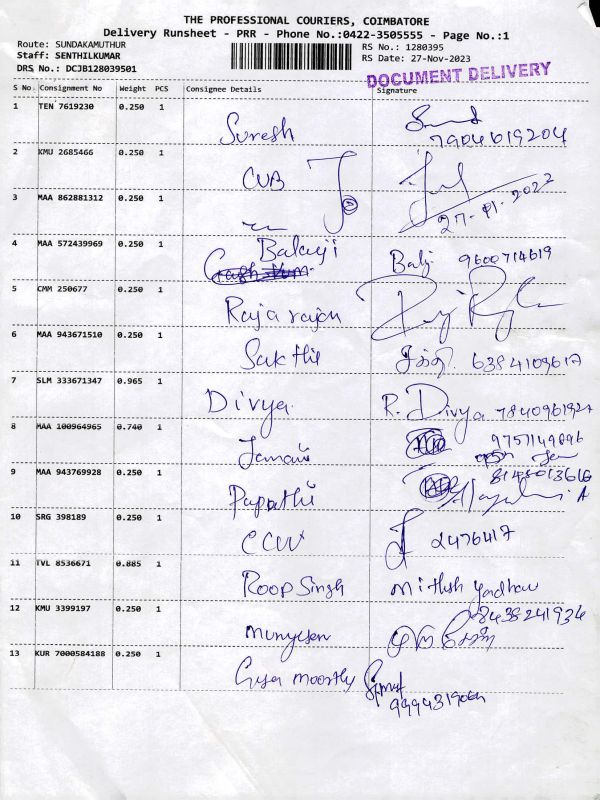 THE PROFESSIONAL COURIERS, COIMBATORE
Delivery Runsheet - PRR - Phone No.:0422-3505555 - Page No.:1
Route: SUNDAKAMUTHUR
RS No.: 1280395
Staff: SENTHILKUMAR
RS Date: 27-Nov-2023
DRS No.: DCJB128039501
DOCUMENT DELIVERY
S No. Consignment No Weight PCS Consignee Details Signature
1 TEN 7619230 0.250 1
Suresh
7904619204
2 KMU 2685466 0.250 1
CUB
3 MAA 862881312 0.250 1
4 MAA 572439969 0.250 1
Balaji
Balj 9600714619
5 CMM 250677 0.250 1
Rajarajan
6 MAA 943671510 0.250 1
Sakthi
6384109617
7 SLM 333671347 0.965 1
Divya
R. Divya
8 MAA 100964965 0.740 1
9 MAA 943769928 0.250 1
Papathi
10 SRG 398189 0.250 1
2476417
11 TVL 8536671 0.885 1
Roop Singh Mithsh Yadhav
12 KMU 3399197 0.250 1
8438241934
13 KUR 7000584188 0.250 1
moorthy